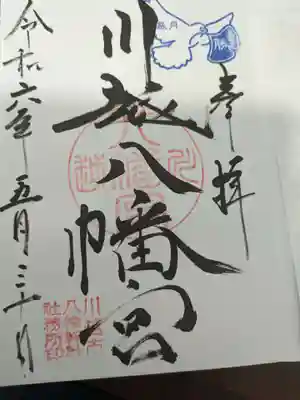 奉拝
川越八幡宮
令和六年五月三十日
社務所印